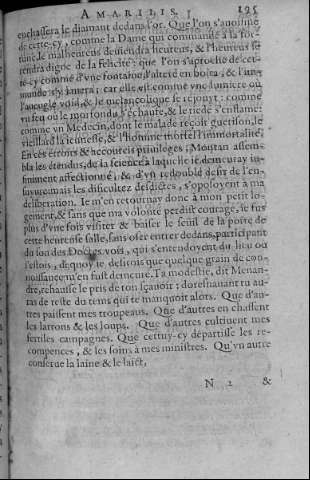 AMARILIS. 195
enchassera le diamant dedans l'or. Que l'on s'auoisine
de cette-cy, comme la Dame qui commande à la for-
tune, le malheureux deuiendra heureux, & l'heureux se
rendra digne de la felicité: que l'on s'aproche de cet-
te-cy comme d'vne fontaine, l'alteré en boira, & l'im-
munde s'y lauera: car elle est comme vne lumiere où
l'aueugle void, & le melancolique se rejouyt: comme
vn feu où le morfondu s'échaute, & le tiede s'enflame:
comme vn Medecin, dont le malade reçoit guerison, le
vieillard la ieunesse, & l'homme mortel l'immortalité.
En ces erreurs & accouteis priuileges; Moutan assem-
bla les étendus, de la science à laquelle ie demeuray in-
finiment affectionné, & d'vn redoublé desir de l'en-
suyure mais les discultez desdictes, s'opoloyent à ma
deliberation. Ie m'en retournay donc à mon petit lo-
gement, & sans que ma volonté perdist courage, ie fus
plus d'vne fois visiter & baiser le seuil de la porte de
cette heureuse salle, sans oser entrer dedans, participant
du son des Doctes voix, qui s'entendoyent du lieu où
i'estois, dequoy ie desirois que quelque grain de con-
noissance m'en fust demeuré. Ta modestie, dit Menan-
dre, rehausse le pris de ton sçauoir: doresnauant tu au-
ras de reste du tems qui te manquoit alors. Que d'au-
tres paissent mes troupeaux. Que d'autres en chassent
les larrons & les loups. Que d'autres cultiuent mes
fertiles campagnes. Que cettuy-cy départisse les re-
compences, & les soins à mes ministres. Qu'vn autre
conserue la laine & le laict,
N 2 &